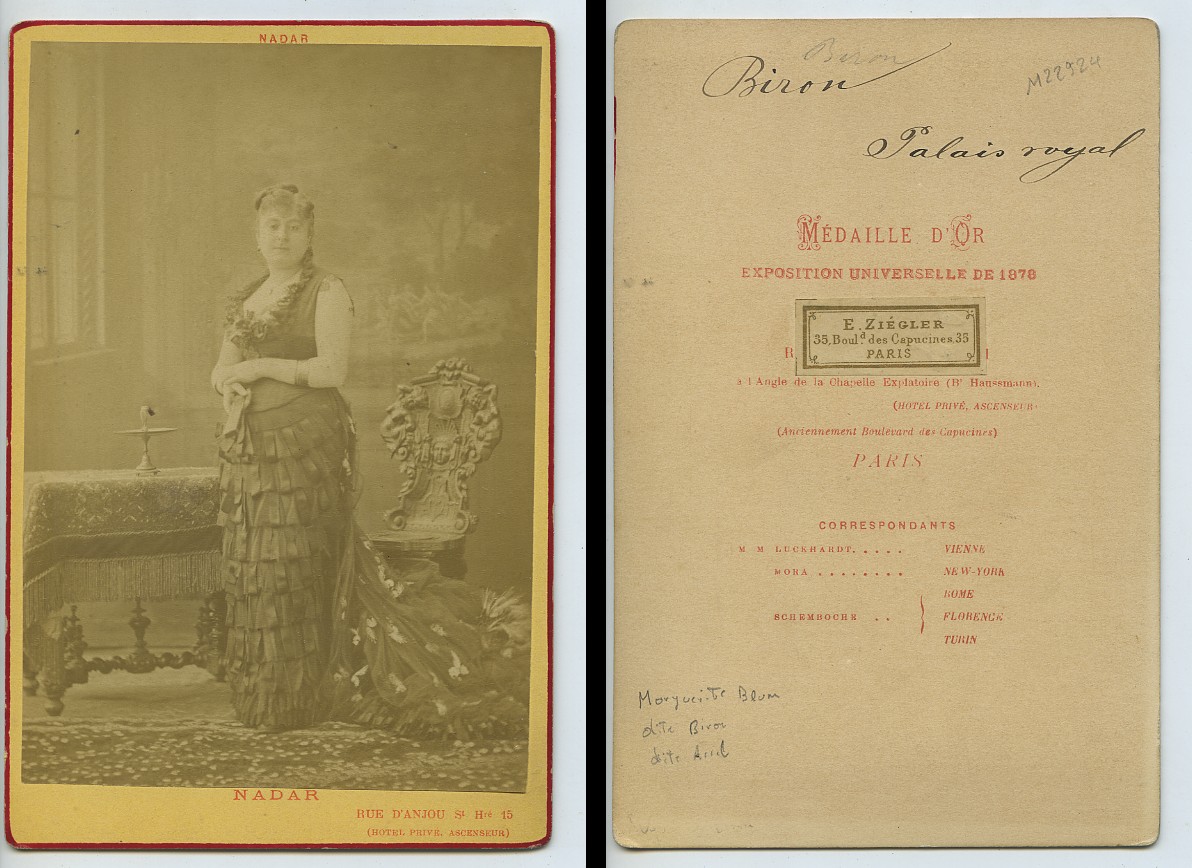 NADAR
NADAR
RUE D'ANJOU St Hré 15
(HOTEL PRIVÉ, ASCENSEUR)
Biron
Biron
M22924
Palais royal
MÉDAILLE D'OR
EXPOSITION UNIVERSELLE DE 1878
E. ZIÉGLER
35, Bould des Capucines, 35
PARIS
à l'Angle de la Chapelle Expiatoire (Bd Haussmann).
(HOTEL PRIVÉ, ASCENSEUR)
(Anciennement Boulevard des Capucines)
PARIS
CORRESPONDANTS
M M LUCKHARDT. . . . . VIENNE
MORA . . . . . . . . NEW-YORK
ROME
SCHEMBOCHE . . } FLORENCE
TURIN
Marguerite Blum
dite Biron
dite